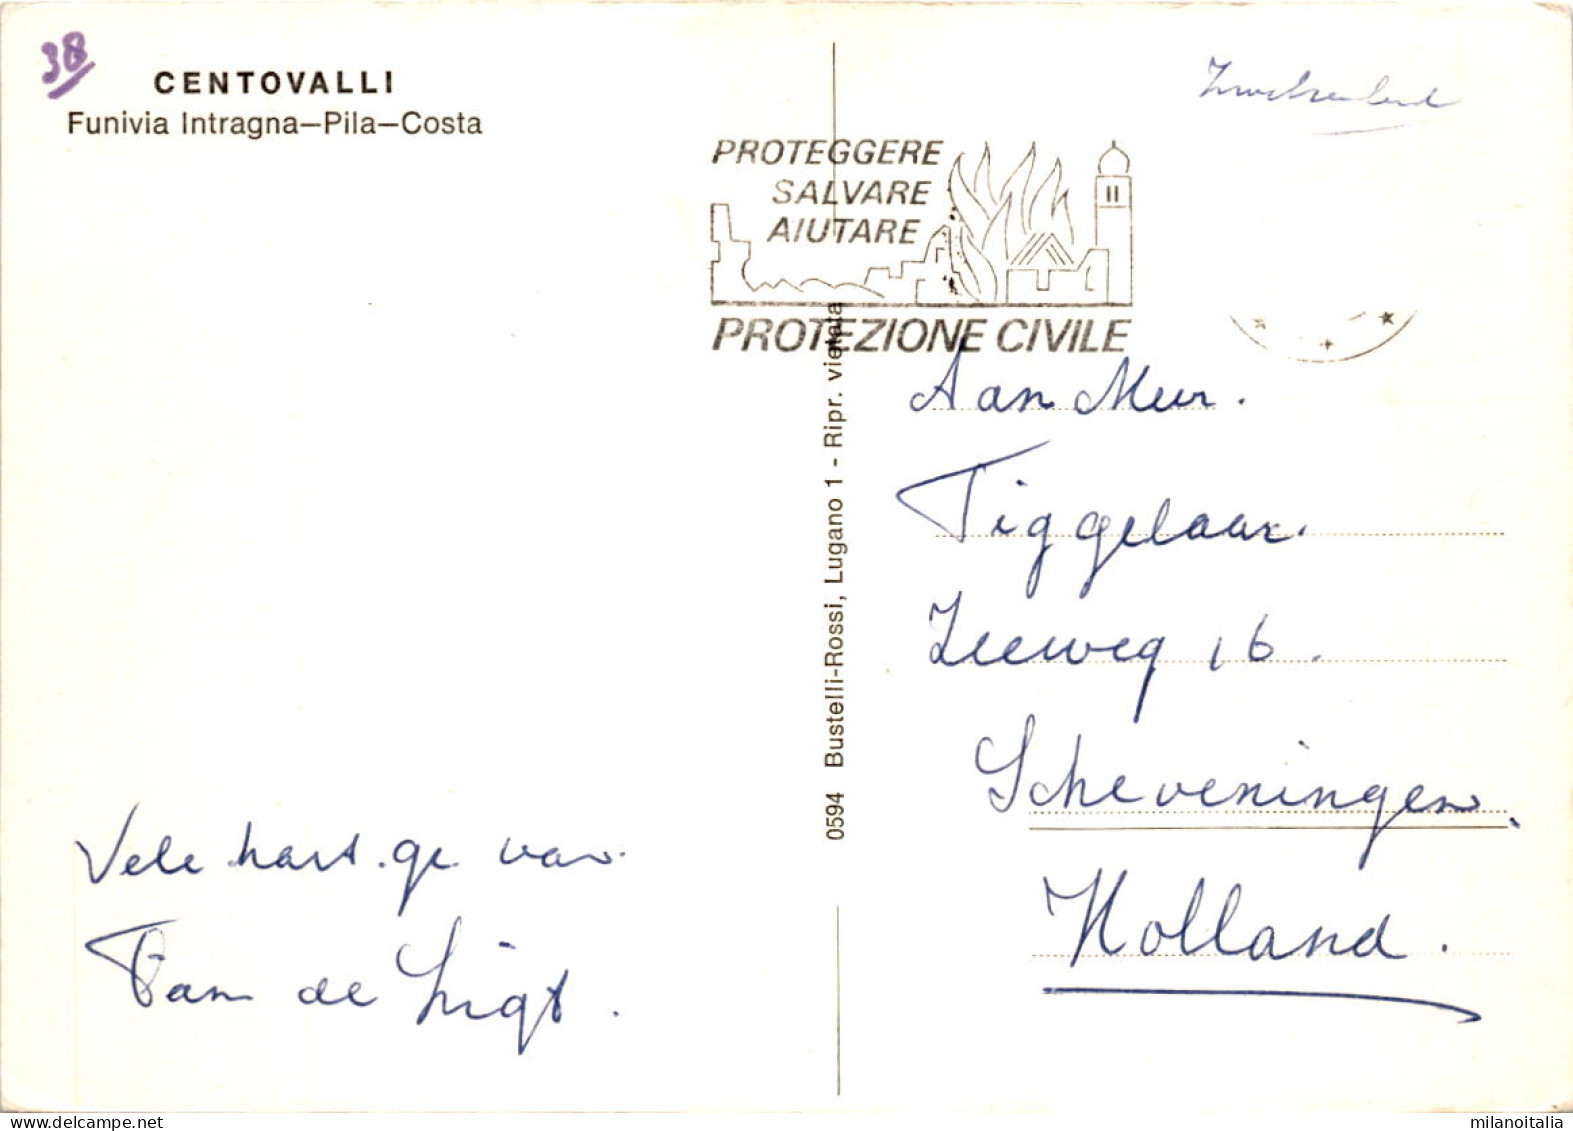 38
CENTOVALLI
Funivia Intragna–Pila–Costa
PROTEGGERE
SALVARE
AIUTARE
PROTEZIONE CIVILE
0594 Bustelli-Rossi, Lugano 1 - Ripr. vietata
Aan Meur.
Tiggelaar.
Zeeweg 16.
Scheveningen.
Holland.
Vele hart. gr. van
Fam de Ligt.
delcampe.net
milanoitalia